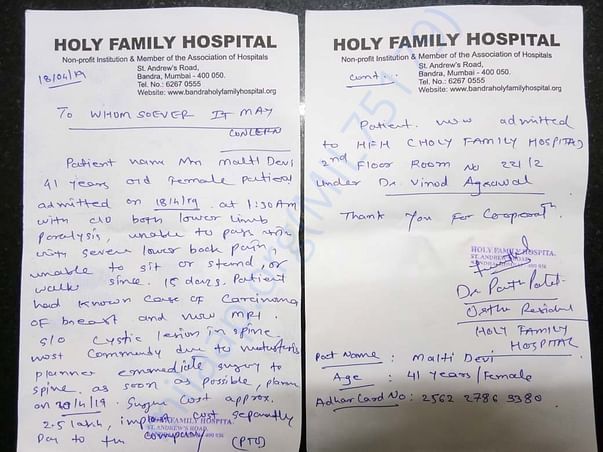 HOLY FAMILY HOSPITAL
Non-profit Institution & Member of the Association of Hospitals
St. Andrew's Road,
Bandra, Mumbai - 400 050.
Tel. No.: 6267 0555
Website: www.bandraholyfamilyhospital.org
18/04/19
TO WHOM SOEVER IT MAY
CONCERN
Patient name Mrs Malti Devi
41 years old female patient
admitted on 18/4/19 at 1:30 AM
with c/o both lower limb
Paralysis, unable to pass urine
with severe lower back pain
unable to sit or stand or
walk since 15 days. Patient
had known case of Carcinoma
of breast and now MRI
s/o cystic lesion in spine
most commonly due to metastasis
planned emmediate surgery to
spine as soon as possible, plan
on 20/4/19. Surgery cost approx.
2.5 lakh, implant cost separately
Pay to the company
(PTO)
HOLY FAMILY HOSPITAL
Non-profit Institution & Member of the Association of Hospitals
St. Andrew's Road,
Bandra, Mumbai - 400 050.
Tel. No.: 6267 0555
Website: www.bandraholyfamilyhospital.org
Cont...
Patient now admitted
to HFH (HOLY FAMILY HOSPITAL)
2nd Floor Room No 221/2
under Dr. Vinod Agrawal
Thank you For Cooperatn.
HOLY FAMILY HOSPITA.
ST. ANDREW'S ROAD,
Ortho Resident
HOLY FAMILY
HOSPITAL
Malti Devi
Age : 41 years/Female
Adhar Card No: 2562 2786 3380